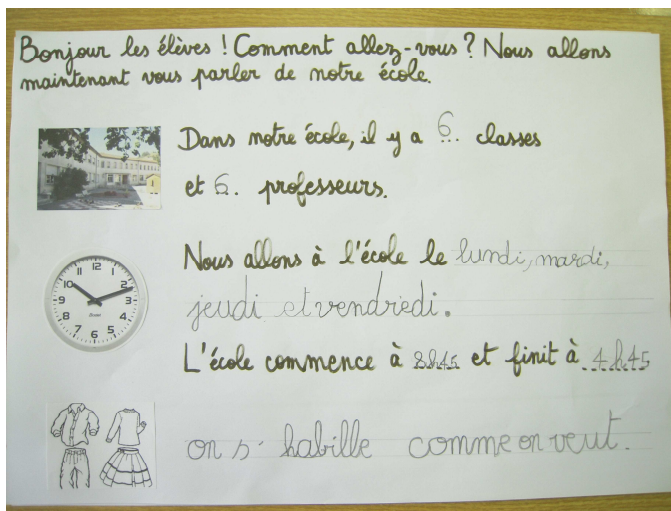 Bonjour les élèves ! Comment allez-vous ? Nous allons
maintenant vous parler de notre école.
Dans notre école, il y a 6 classes
et 6 professeurs.
Nous allons à l'école le lundi, mardi,
jeudi et vendredi.
L'école commence à 8h45 et finit à 4h45
on s'habille comme on veut.
12
1
2
3
4
5
6
7
8
9
10
11